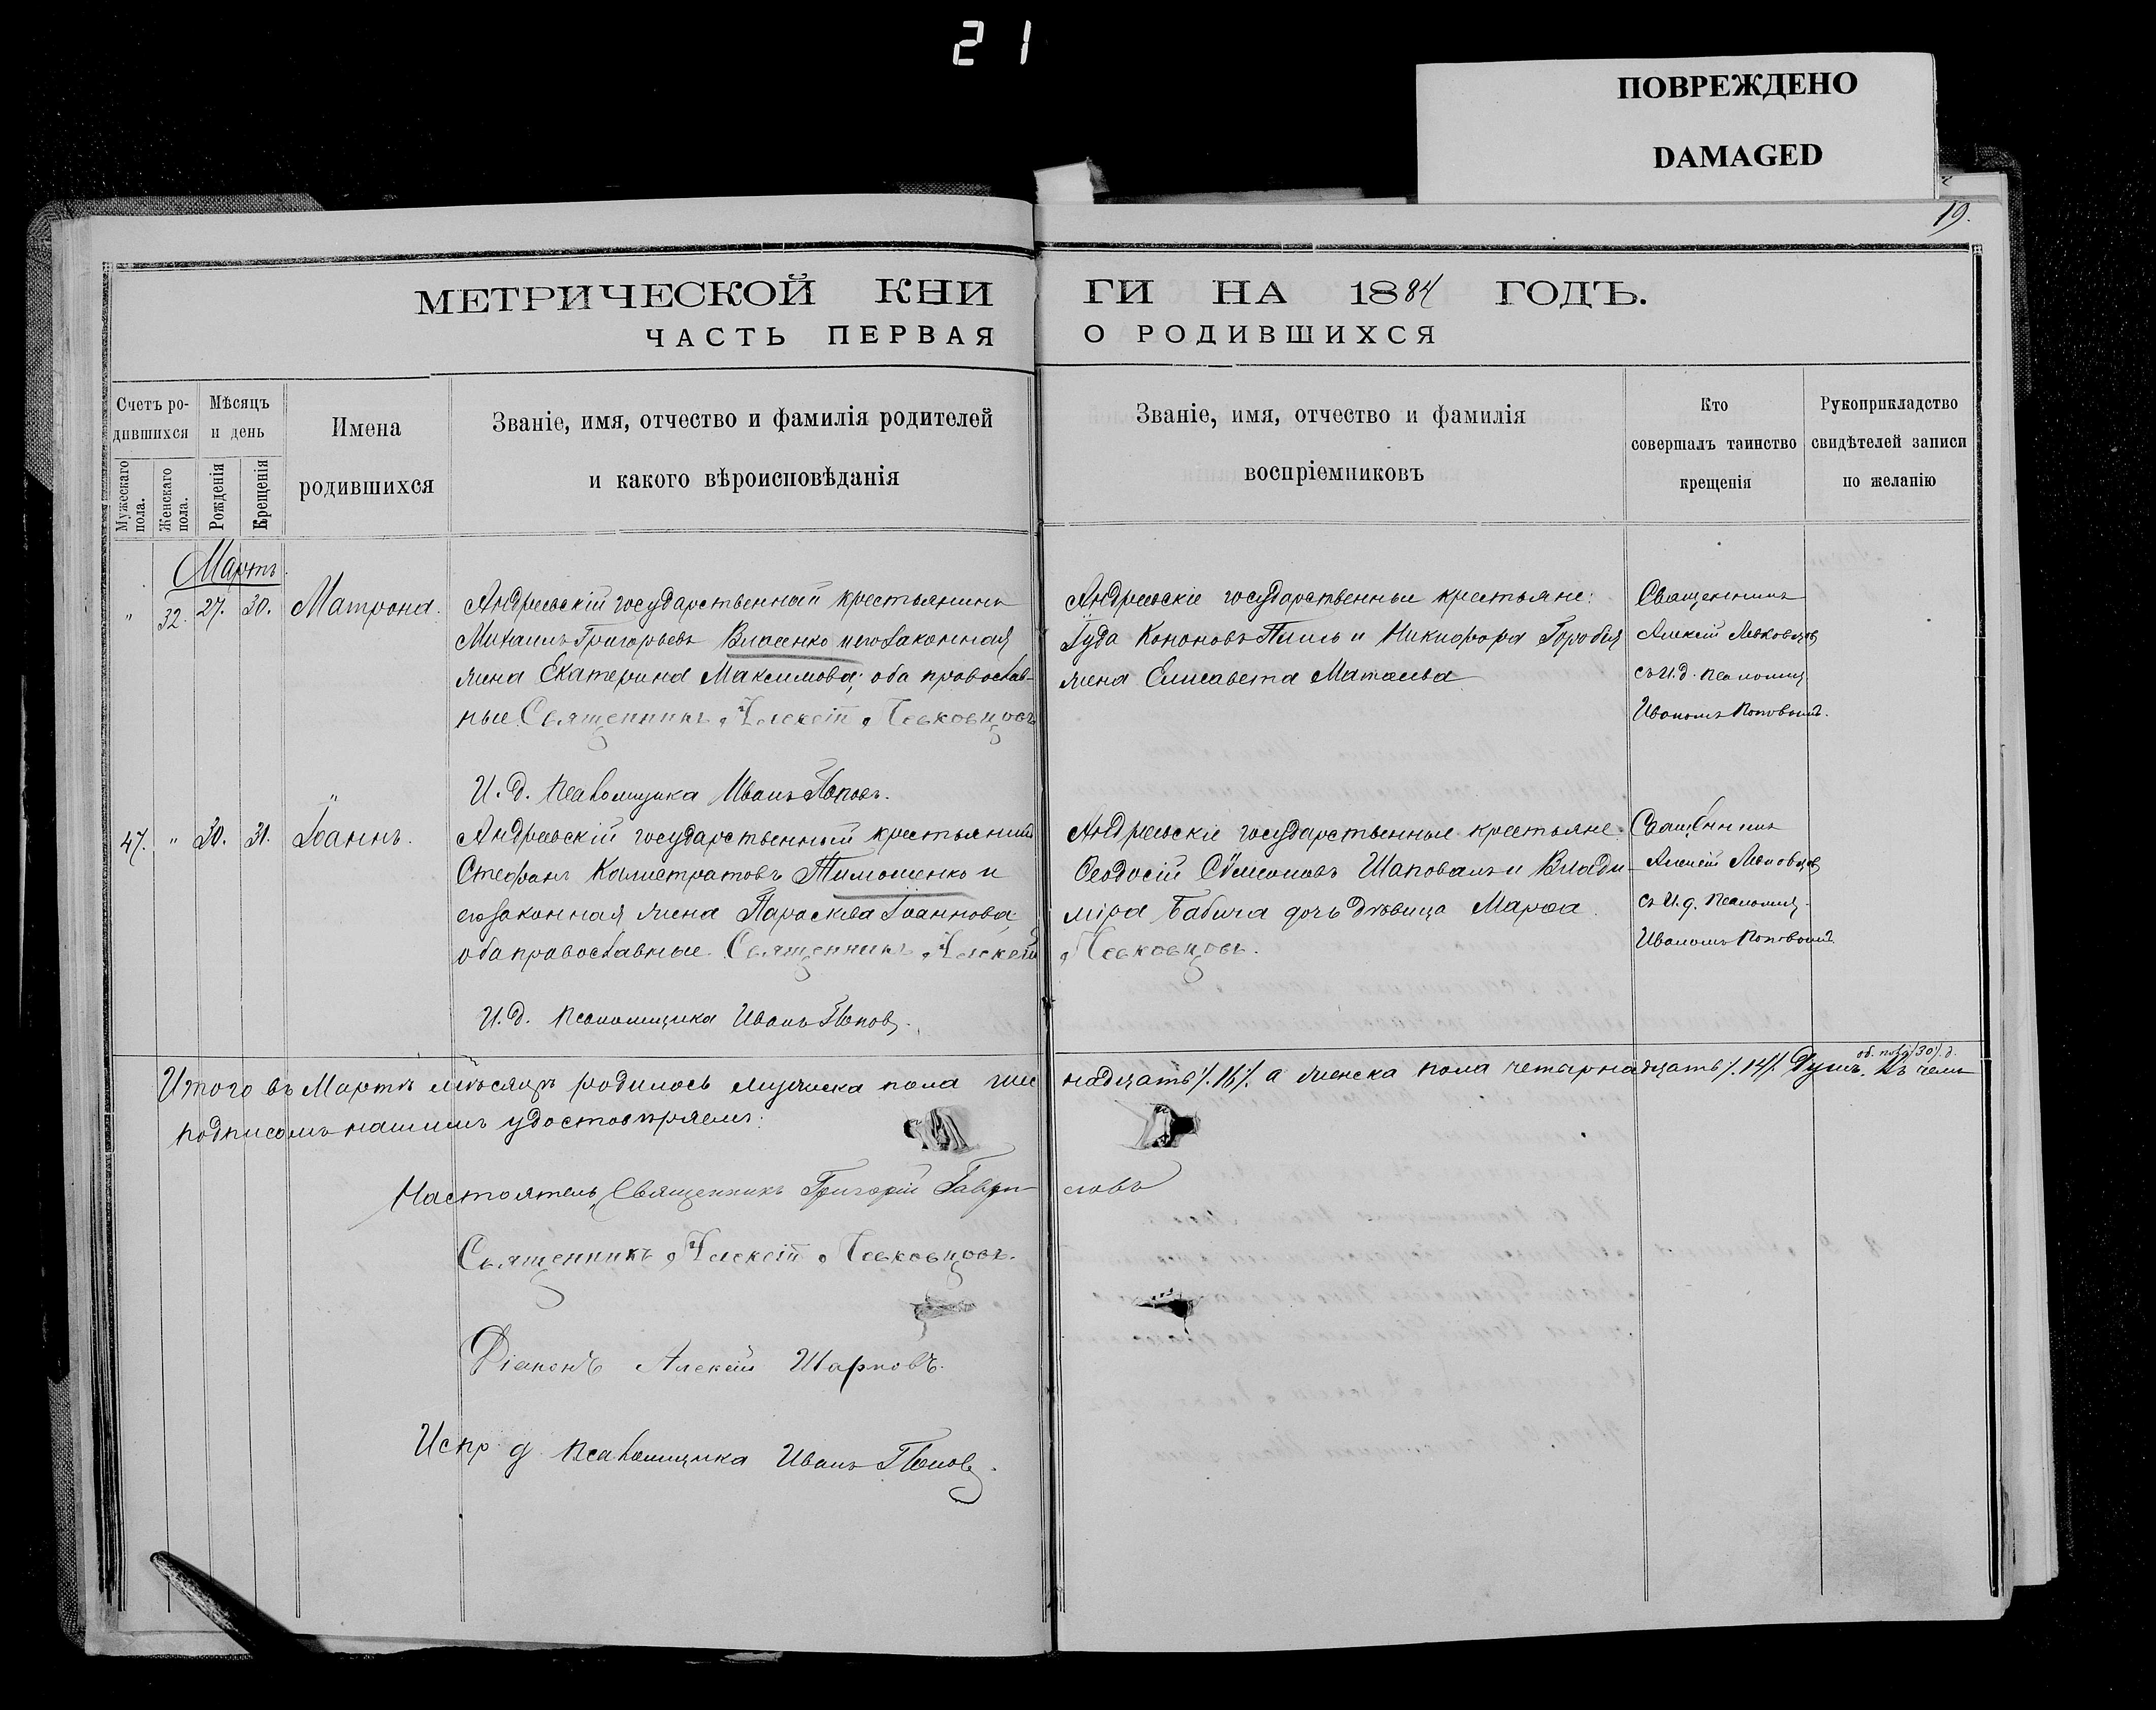 21
ПОВРЕЖДЕНО
DAMAGED
19.
МЕТРИЧЕСКОЙ КНИ ГИ НА 1884 ГОДЪ.
ЧАСТЬ ПЕРВАЯ О РОДИВШИХСЯ
Счетъ ро-
дившихся
Мужескаго
пола.
Женскаго
пола.
Мѣсяцъ
и день
Рожденія
Крещенія
Имена
родившихся
Званіе, имя, отчество и фамилія родителей
и какого вѣроисповѣданія
Званіе, имя, отчество и фамилія
воспріемниковъ
Кто
совершалъ таинство
крещенія
Рукоприкладство
свидѣтелей записи
по желанію
Мартъ.
" 32. 27. 30. Матрона.
Андреевскій государственный крестьянинъ
Михаилъ Григорьевъ Власенко и его законная
жена Екатерина Максимова; оба православ-
ные. Священникъ Алексій Левковцовъ
И. д. псаломщика Иванъ Поповъ.
Андреевскіе государственные крестьяне:
Іуда Кононовъ и Никифора Горобця
жена Елисавета Матѳеева
Священникъ
Алексій Левковцовъ
съ И. д. псаломщ.
Иваномъ Поповымъ.
47. " 30. 31. Іоаннъ.
Андреевскій государственный крестьянинъ
Стефанъ Калистратовъ Тимошенко и
его законная жена Параскева Іоаннова;
оба православные. Священникъ Алексій Левковцовъ.
И. д. псаломщика Иванъ Поповъ.
Андреевскіе государственные крестьяне:
Ѳеодосій Сѵмеоновъ Шаповалъ и Влади-
міра Бабича дочь дѣвица Марѳа.
Священникъ
Алексій Левковцовъ
съ И. д. псаломщ.
Иваномъ Поповымъ.
Итого въ Мартѣ мѣсяцѣ родилось мужеска пола шес надцать /.16/. а женска пола четырнадцать /.14/. об. пола /30/. д. Душъ. Въ чемъ
подписомъ нашимъ удостовѣряемъ:
Настоятель, Священникъ Григорій Гаври ловъ
Священникъ Алексій Левковцовъ.
Діаконъ Алексій Шарковъ.
Испр. д. псаломщика Иванъ Поповъ.